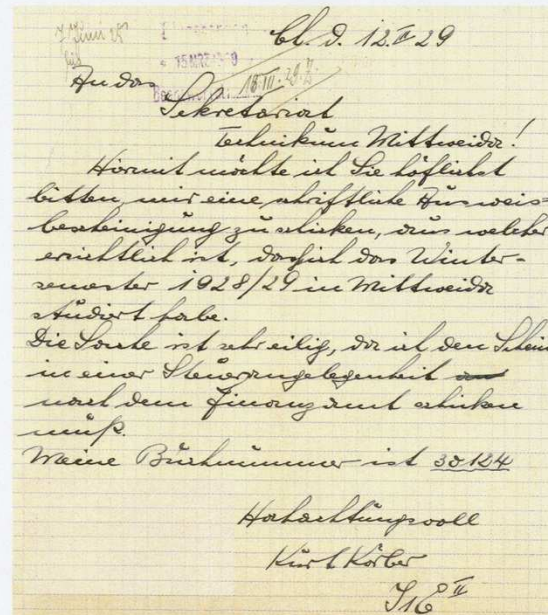 Bl. d. 12. II 29
15 MRZ
18. III. 29
An das
Sekretariat
Technikum Mittweida!
Hiermit möchte ich Sie höflichst
bitten, mir eine schriftliche Ausweis=
bescheinigung zu schicken, aus welcher
ersichtlich ist, daß ich das Winter-
semester 1928/29 in Mittweida
studiert habe.
Die Sache ist sehr eilig, da ich den Schein
in einer Steuerangelegenheit
nach dem Finanzamt schicken
muß.
Meine Buchnummer ist 30124
Hochachtungsvoll
Kurt Körber